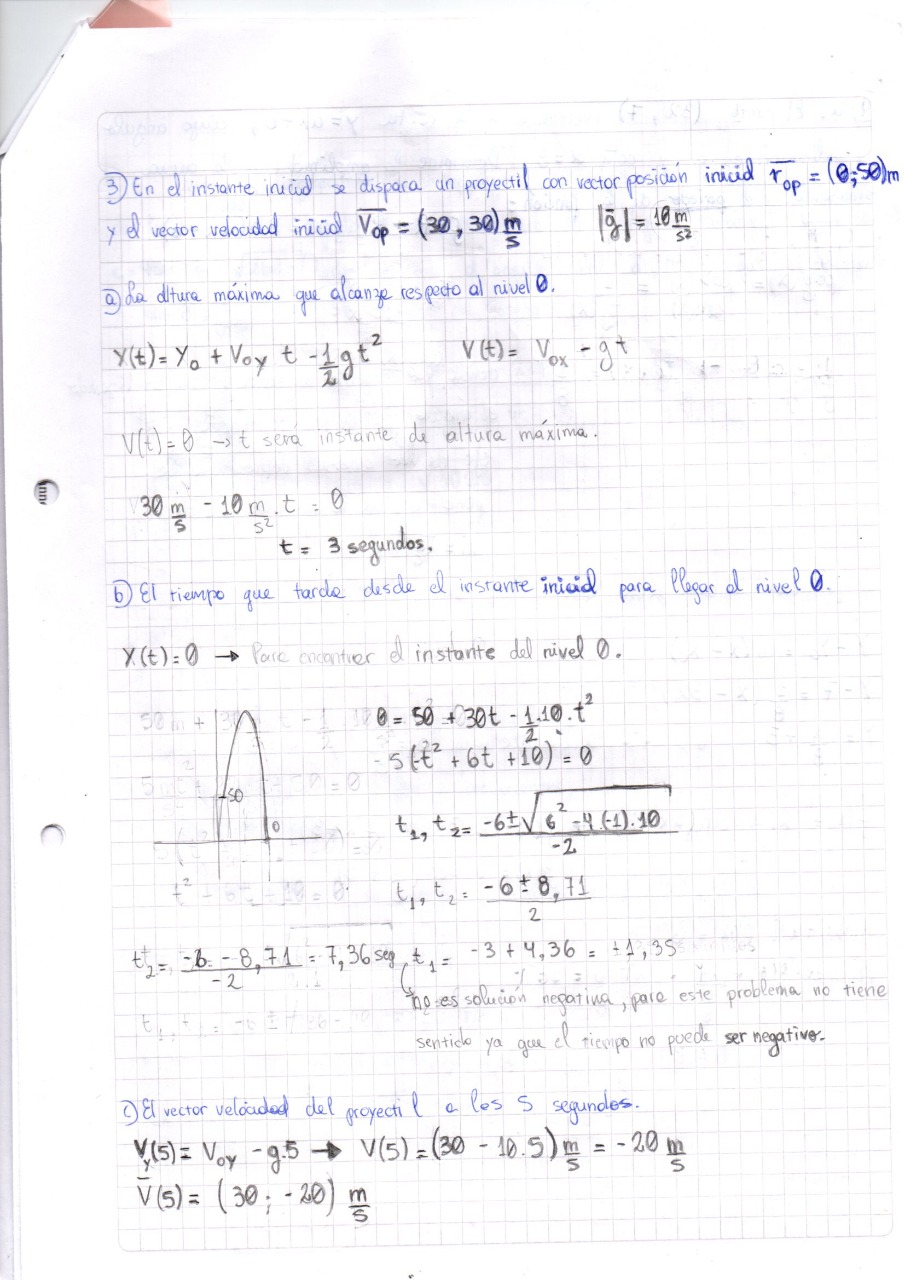 3) En el instante inicial se dispara un proyectil con vector posición inicial r̄op = (0;50)m
y el vector velocidad inicial V̄op = (30, 30) m/s |ḡ| = 10 m/s²
a) La altura máxima que alcanze respecto al nivel 0.
Y(t) = Yo + Voy t - 1/2 g t² V(t) = Vox - g t
V(t) = 0 → t será instante de altura máxima.
30 m/s - 10 m/s² . t = 0
t = 3 segundos.
b) El tiempo que tarda desde el instante inicial para llegar al nivel 0.
Y(t) = 0 → Para encontrar el instante del nivel 0.
0 = 50 + 30t - 1/2 . 10 . t²
5(-t² + 6t + 10) = 0
50
0
t1, t2 = (-6 ± √(6² - 4(-1).10)) / -2
t1, t2 = (-6 ± 8,71) / 2
t2 = (-6 - 8,71) / -2 = 7,36 seg, t1 = -3 + 4,36 = +1,35
no es solución negativa, para este problema no tiene
sentido ya que el tiempo no puede ser negativo.
c) El vector velocidad del proyectil a los 5 segundos.
Vy(5) = Voy - g.5 → V(5) = (30 - 10.5) m/s = -20 m/s
V̄(5) = (30; -20) m/s